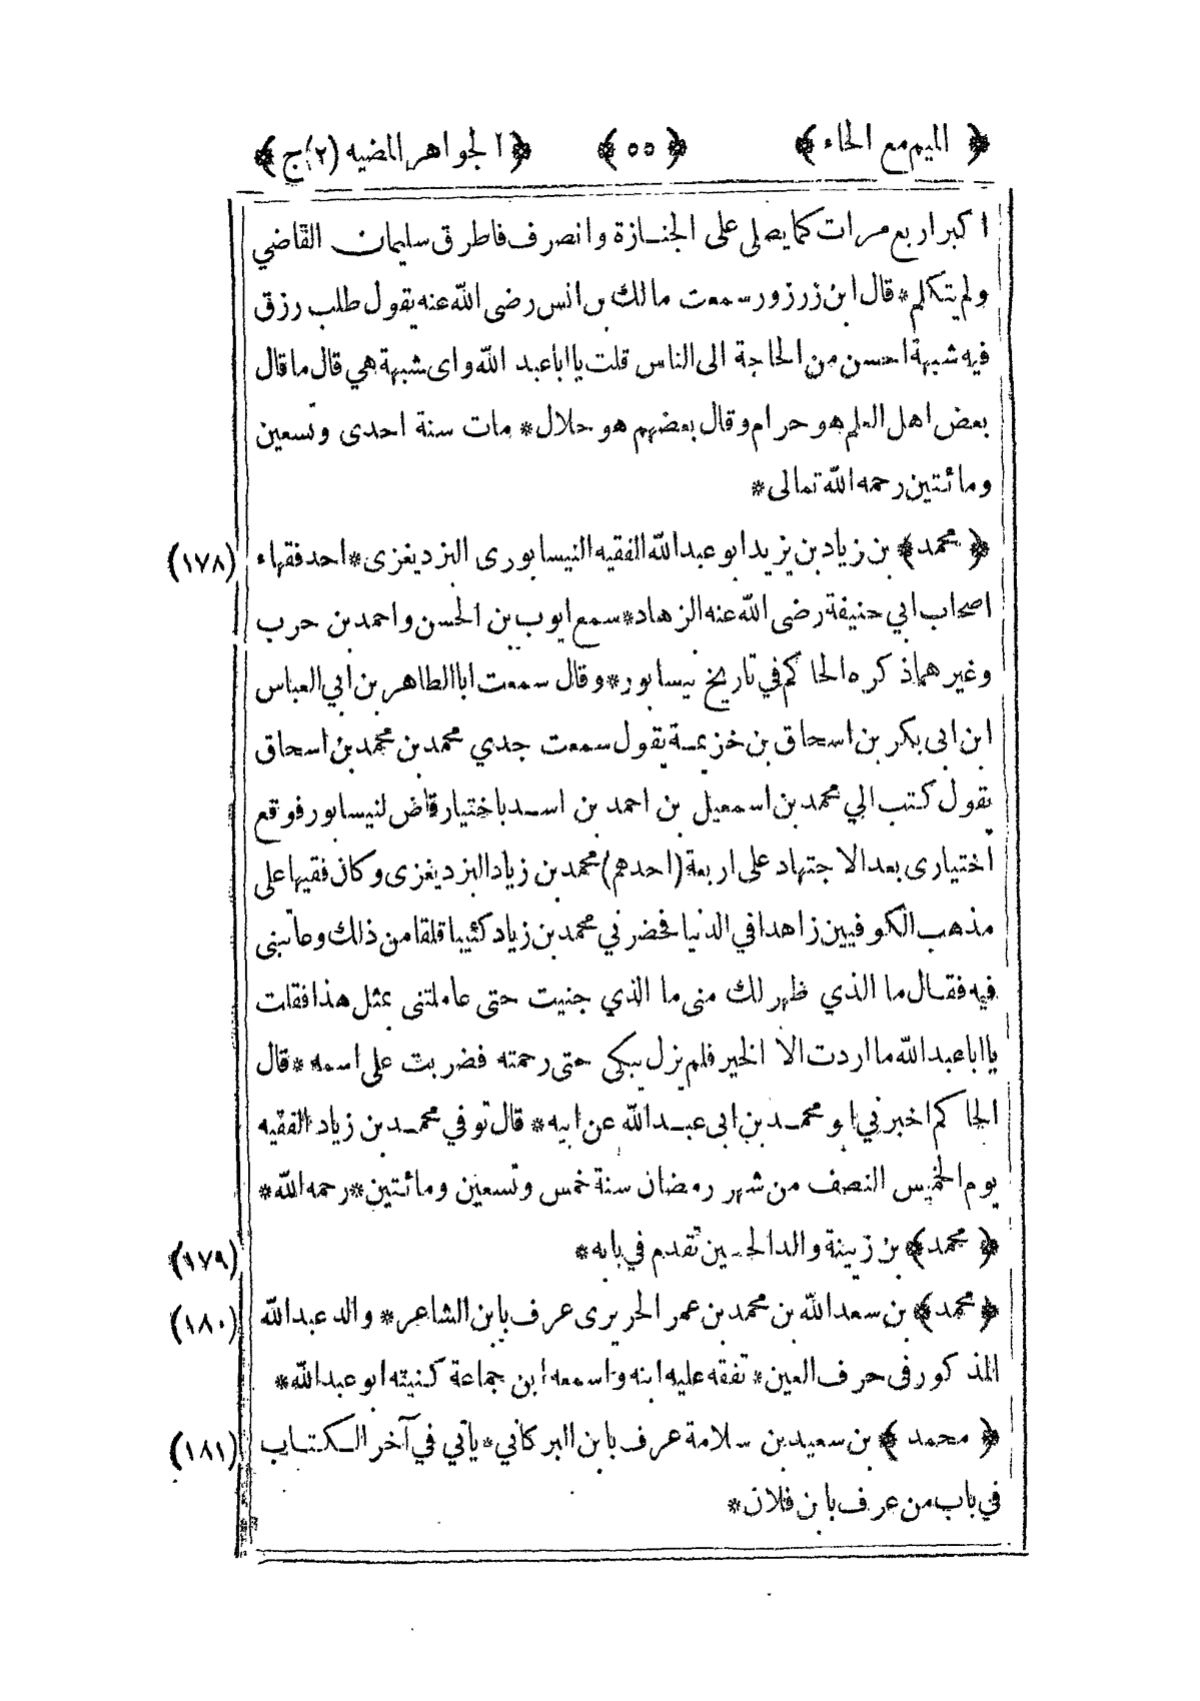 ﴿ الميم مع الحاء ﴾ ﴿ ٥٥ ﴾ ﴿ الجواهر المضيه (٢) ج ﴾
اكبر اربع مرات كما يصلى على الجنازة وانصرف فاطرق سليمان القاضي
ولم يتكلم * قال ابن زرزور سمعت مالك بن انس رضى الله عنه يقول طلب رزق
فيه شبهة احسن من الحاجة الى الناس قلت يا ابا عبد الله واى شبهة هي قال ما قال
بعض اهل العلم هو حرام وقال بعضهم هو حلال * مات سنة احدى وتسعين
ومائتين رحمه الله تعالى *
﴿ محمد ﴾ بن زياد بن يزيد ابو عبد الله الفقيه النيسابورى البزديغزى * احد فقهاء (١٧٨)
اصحاب ابي حنيفة رضى الله عنه الزهاد * سمع ايوب بن الحسن واحمد بن حرب
وغيرهما ذكره الحاكم في تاريخ نيسابور * وقال سمعت ابا الطاهر بن ابي العباس
ابن ابى بكر بن اسحاق بن خزيمة يقول سمعت جدي محمد بن محمد بن اسحاق
يقول كتب الي محمد بن اسمعيل بن احمد بن اسد باختيار قاض لنيسابور فوقع
اختيارى بعد الاجتهاد على اربعة (احدهم) محمد بن زياد البزديغزى وكان فقيها على
مذهب الكوفيين زاهدا في الدنيا فحضرني محمد بن زياد كئيبا قلقا من ذلك وعاتبنى
فيه فقال ما الذي ظهر لك منى ما الذي جنيت حتى عاملتنى بمثل هذا فقلت
يا ابا عبد الله ما اردت الا الخير فلم يزل يبكى حتى رحمته فضربت على اسمه * قال
الحاكم اخبرني ابو محمد بن ابى عبد الله عن ابيه * قال توفي محمد بن زياد الفقيه
يوم الخميس النصف من شهر رمضان سنة خمس وتسعين ومائتين * رحمه الله *
﴿ محمد ﴾ بن زينة والد الحسين تقدم في بابه * (١٧٩)
﴿ محمد ﴾ بن سعد الله بن محمد بن عمر الحريرى عرف بابن الشاعر * والد عبد الله (١٨٠)
المذكور فى حرف العين * تفقه عليه ابنه واسمعه ابن جماعة كنيته ابو عبد الله *
﴿ محمد ﴾ بن سعيد بن سلامة عرف بابن البركاني * ياتي في آخر الكتاب (١٨١)
في باب من عرف بابن فلان *